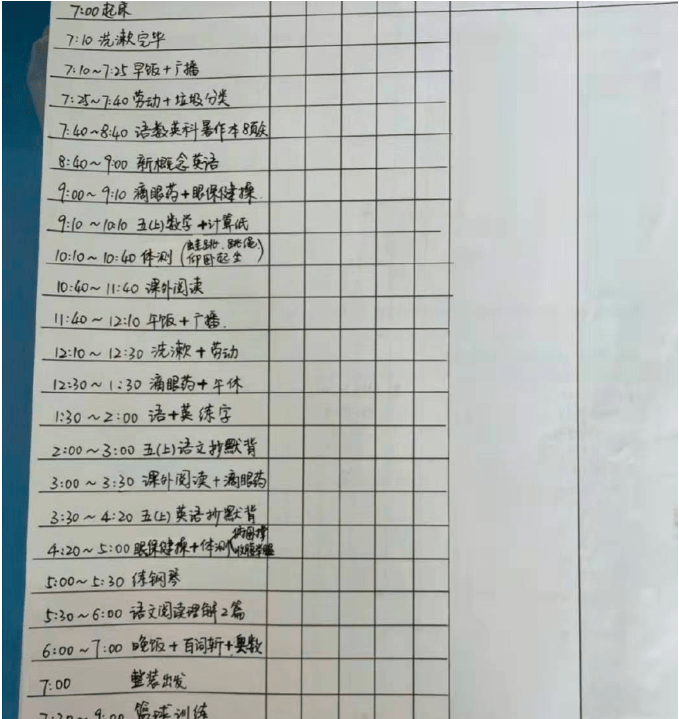 7:00 起床
7:10 洗漱完毕
7:10~7:25 早饭+广播
7:25~7:40 劳动+垃圾分类
7:40~8:40 语数英科暑作本8页
8:40~9:00 新概念英语
9:00~9:10 滴眼药+眼保健操
9:10~10:10 五(上)数学+计算纸
10:10~10:40 体测(蛙跳、跳绳、仰卧起坐)
10:40~11:40 课外阅读
11:40~12:10 午饭+广播
12:10~12:30 洗漱+劳动
12:30~1:30 滴眼药+午休
1:30~2:00 语+英 练字
2:00~3:00 五(上)语文抄默背
3:00~3:30 课外阅读+滴眼药
3:30~4:20 五(上)英语抄默背
4:20~5:00 眼保健操+体测
5:00~5:30 练钢琴
5:30~6:00 语文阅读理解2篇
6:00~7:00 晚饭+百词斩+奥数
7:00 整装出发
7:30~9:00 篮球训练